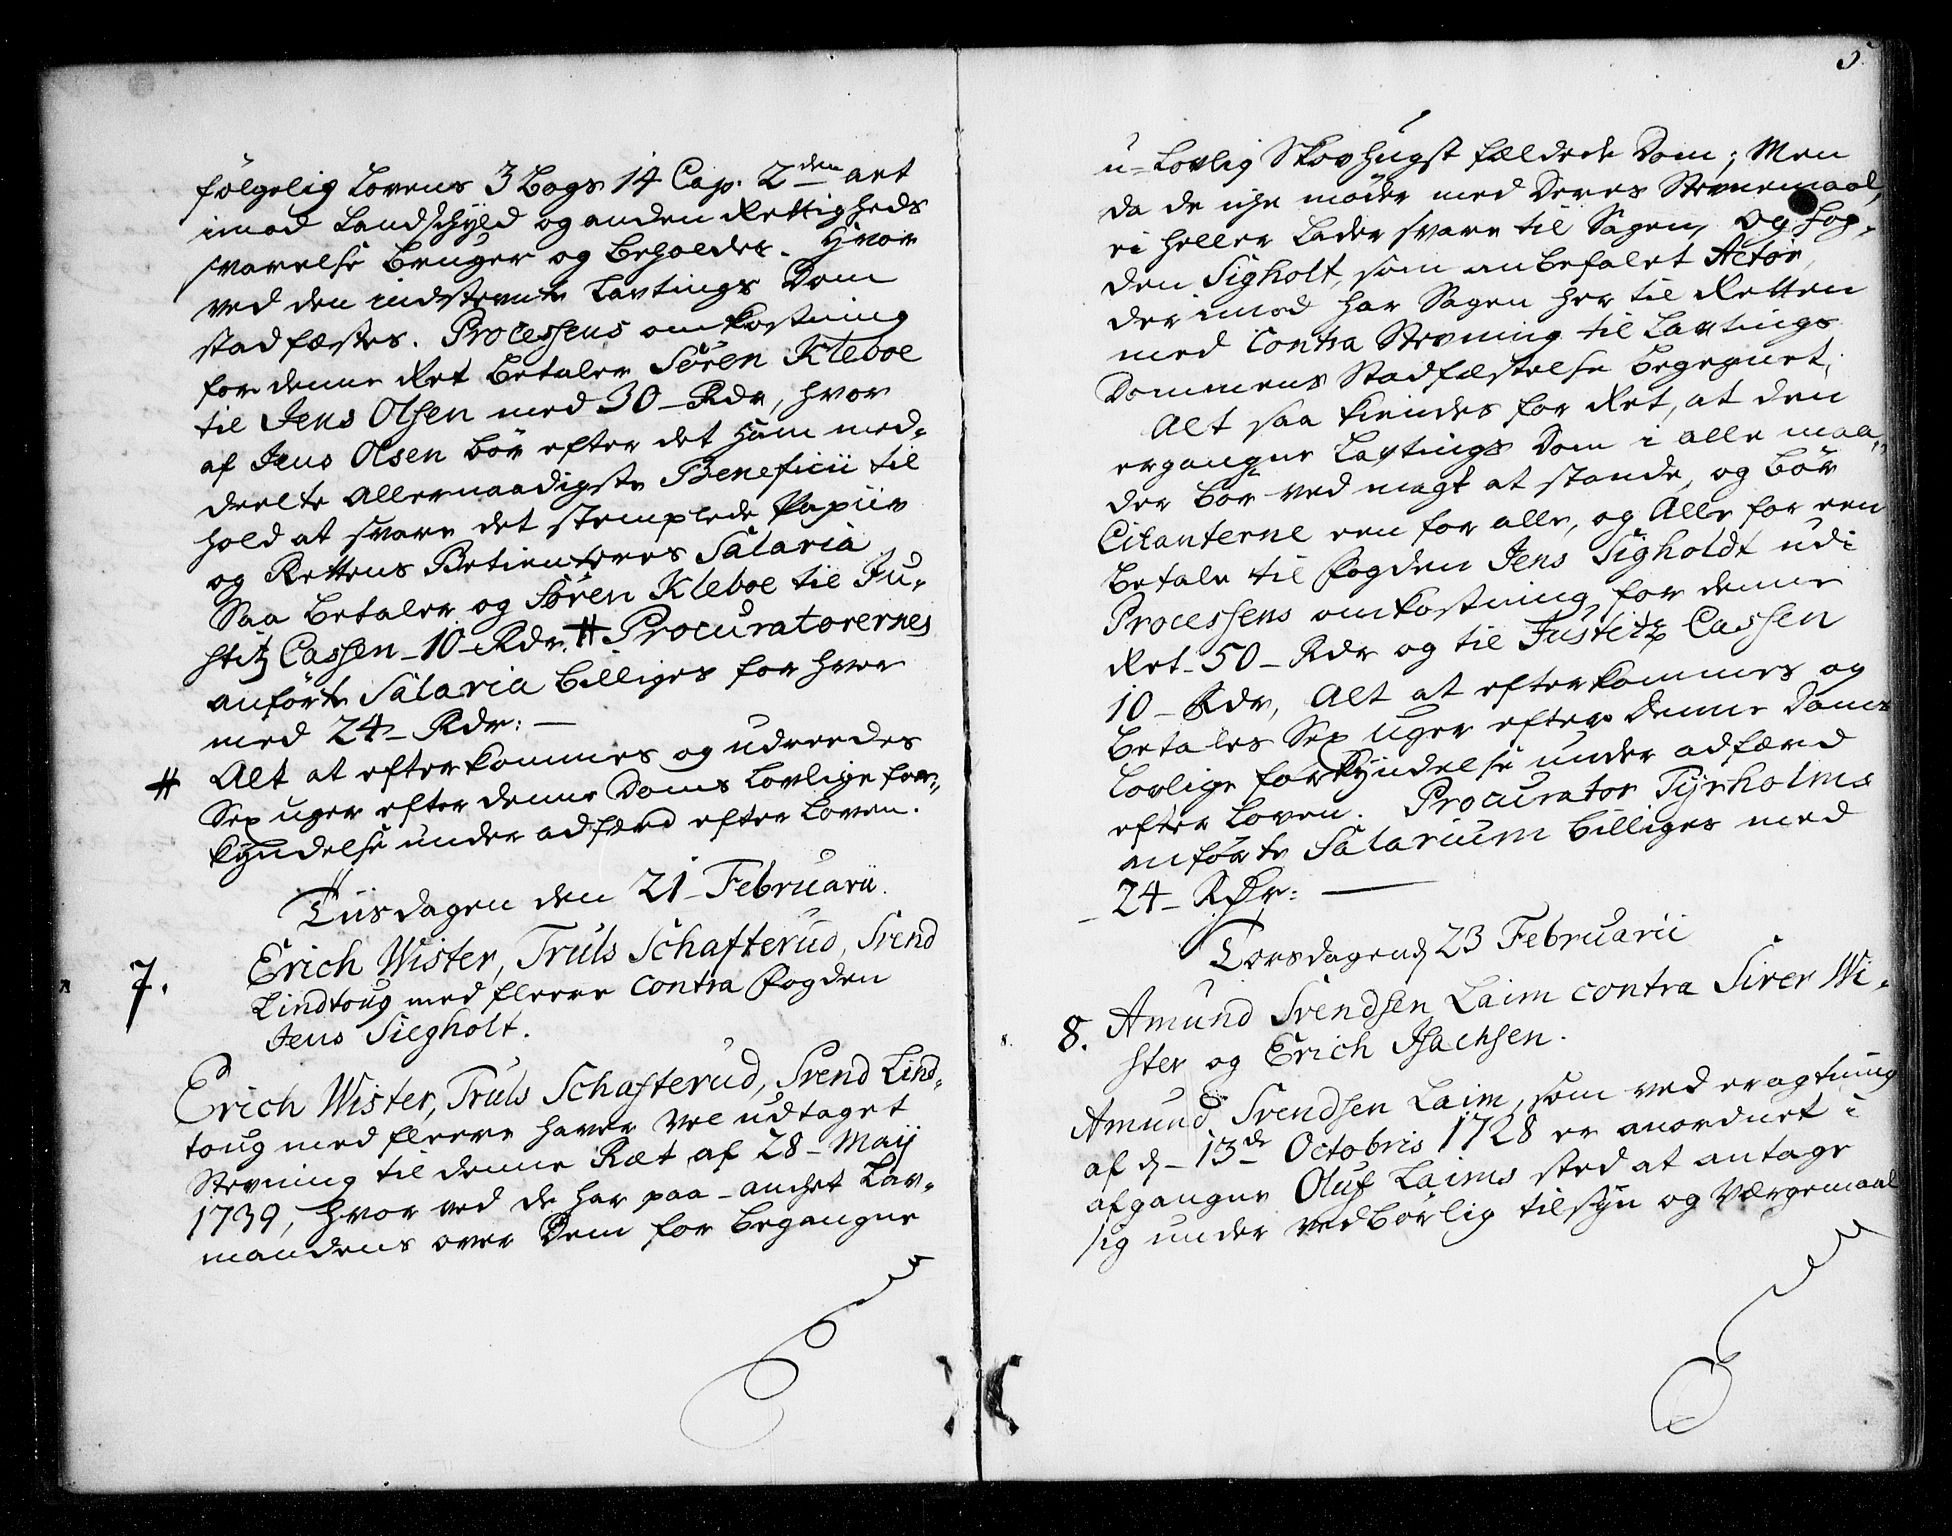 følgelig Lovens 3 Bogs 14 Cap. 2den art
imod Landschyld og anden Rettigheds
svarelse bruger og beholder. Hvor
ved den indstevnte Lavtings Dom
stadfæstes. Processens omkostning
for denne Ret betaler Søren Kleboe
til Jens Olsen med 30 Rdr, hvor
af Jens Olsen bør efter det ham med-
deelte allernaadigste Beneficii til
hold at svare det stemplede Papiir
og Rettens Betienteres Salaria
Saa betaler og Søren Kleboe til Ju-
stitz Cassen 10 Rdr. # Procuratorernes
anførte Salaria billiges for hver
med 24 Rdr: —
# Alt at efterkommes og udreedes
Sex uger efter denne Doms lovlige for-
kyndelse under adfærd efter Loven.
Tiisdagen den 21 Februarii.
7. Erich Wister, Truls Schafterud, Svend
Lindtoug med fleere contra Fogden
Jens Siegholt.
Erich Wister, Truls Schafterud, Svend Lind-
toug med fleere haver vel udtaget
Stevning til denne Ræt af 28 Maij
1739, hvor ved de har paa-anchet Lav-
mandens over Dem for begangne
5.
u-lovlig Skovhugst fældede Dom; Men
da de iche møder med Deres Stevnemaal,
ei heller lader svare til Sagen, og Fog-
den Sigholt, som anbefalet Actor,
derimod har Sagen her til Retten
med Contra Stevning til Lavtings
Dommens Stadfæstelse begegnet;
Alt saa kiendes for Ret, at den
ergangne Lavtings Dom i alle maa-
der bør ved magt at stande, og bør
Citanterne een for alle, og Alle for een
betale til Fogden Jens Sigholdt udi
Processens omkostning for denne
Ret 50 Rdr og til Justitz Cassen
10 Rdr, Alt at efterkommes og
betales Sex uger efter denne Doms
lovlige forkyndelse under adfærd
efter Loven. Procurator Tyrholms
anførte Salarium billiges med
24 Rdr: —
Torsdagen d 23 Februarii
8. Amund Svendsen Laim contra Siver Wi-
ster og Erich Isachsen.
Amund Svendsen Laim, som ved eragtning
af d 13de Octobris 1728 er anordnet i
afgangne Oluf Laims sted at antage
sig under vedbørlig tilsyn og Værgemaal